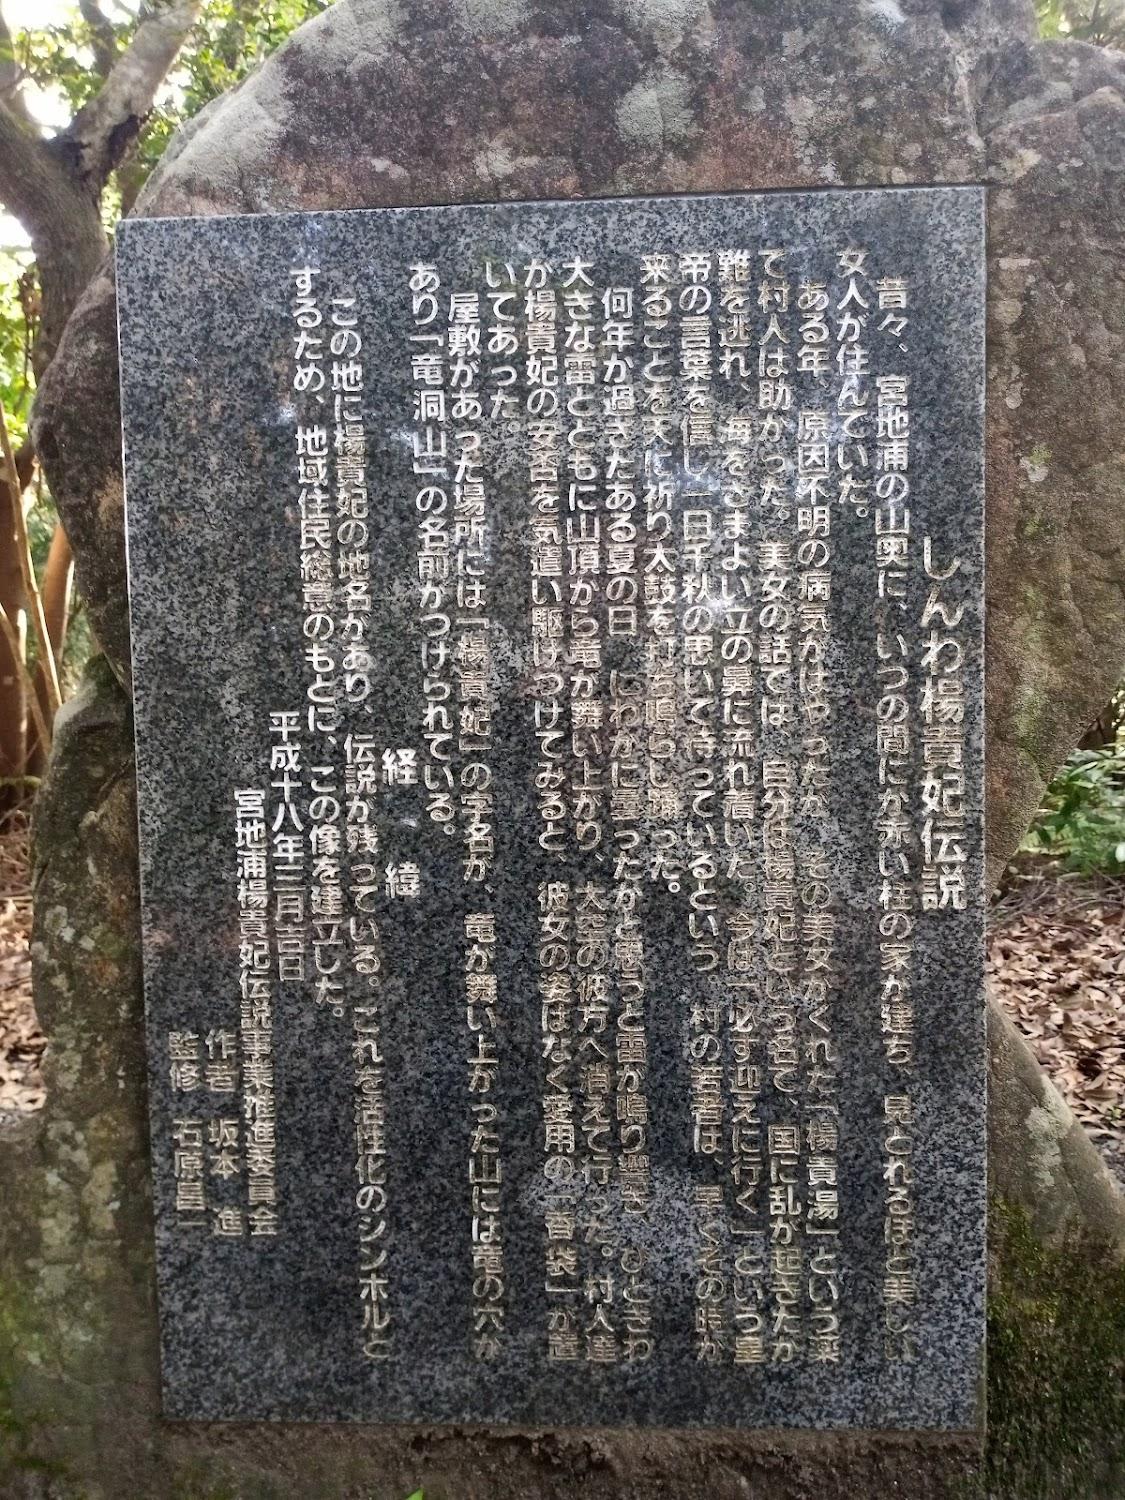 しんわ楊貴妃伝説
昔々、宮地浦の山奥に、いつの間にか赤い柱の家が建ち、見とれるほど美しい
女人が住んでいた。
ある年、原因不明の病気がはやったが、その美女がくれた「楊貴湯」という薬
で村人は助かった。美女の話では、自分は楊貴妃という名で、国に乱が起きたが
難を逃れ、海をさまよい立の鼻に流れ着いた。今は「必ず迎えに行く」という皇
帝の言葉を信じ一日千秋の思いで待っているという 村の若者は、早くその時が
来ることを天に祈り太鼓を打ち鳴らし踊った。
何年か過ぎたある夏の日 にわかに曇ったかと思うと雷が鳴り響き、ひときわ
大きな雷とともに山頂から竜が舞い上がり、大空の彼方へ消えて行った。村人達
が楊貴妃の安否を気遣い駆けつけてみると、彼女の姿はなく愛用の「香袋」が置
いてあった。
屋敷があった場所には「楊貴妃」の字名が、竜が舞い上がった山には竜の穴が
あり「竜洞山」の名前がつけられている。
経緯
この地に楊貴妃の地名があり、伝説が残っている。これを活性化のシンボルと
するため、地域住民総意のもとに、この像を建立した。
平成十八年三月吉日
宮地浦楊貴妃伝説事業推進委員会
作者 坂本 進
監修 石原昌一